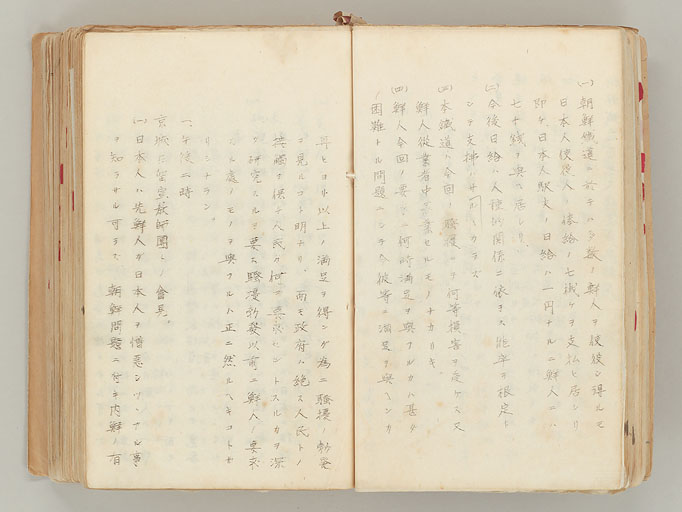 (一)朝鮮鐵道ニ於テハ多数ノ鮮人ヲ使役シ得ルモ
日本人使役人ノ俸給ノ七掛ケヲ支払ヒ居レリ
即チ日本人駅夫ノ日給ハ一円ナルニ鮮人ニハ
七十銭ヲ與ヘ居レリ
(二)今後日給ハ人種的関係ニ依ラス能率ヲ根定ト
シテ支拂ハサルヘカラズ
(三)本鐵道ハ今回ノ騒擾ニヨリ何等損害ヲ受ケス又
鮮人從業者中罷業セルモノナカリキ
(四)鮮人今回ノ要求ニ何時満足ヲ與フルカハ甚ダ
困難ナル問題ニシテ今彼等ニ満足ヲ與ヘンカ
再ヒヨリ以上ノ満足ヲ得ンガ為ニ騒擾ノ勃発
ヲ見ルコト明ナリ、而モ政府ハ絶ス人民トノ
接觸ヲ保チ人民ノ何ヲ要求セントスルカヲ深
ク研究スルヲ要ス騒擾勃發以前ニ鮮人ノ要求
スル處ノモノヲ與フルハ正ニ然ルヘキコトナ
リシナラン。
一、午後二時
京城ニ於宣教師團トノ會見。
(一)日本人ハ先鮮人ガ日本人ヲ憎悪シツヽアル事
ヲ知ラサル可ラズ 朝鮮問題ニ付キ内鮮ノ有